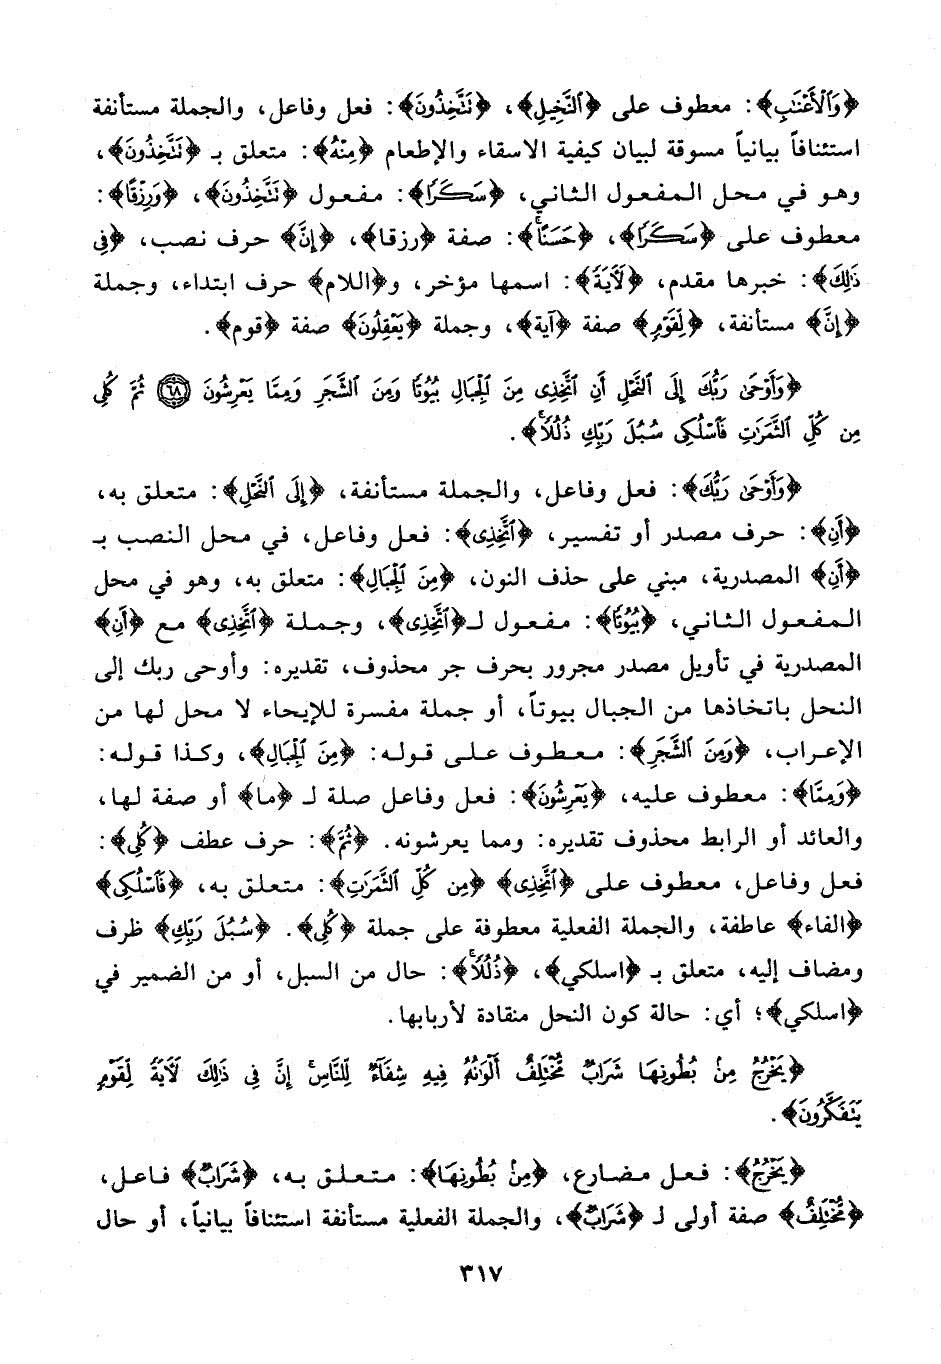 ﴿وَٱلْأَعْنَٰبِ﴾: معطوف على ﴿ٱلنَّخِيلِ﴾، ﴿تَتَّخِذُونَ﴾: فعل وفاعل، والجملة مستأنفة
استئنافاً بيانياً مسوقة لبيان كيفية الاسقاء والإطعام ﴿مِنْهُ﴾: متعلق بـ ﴿تَتَّخِذُونَ﴾،
وهو في محل المفعول الثاني، ﴿سَكَرًا﴾: مفعول ﴿تَتَّخِذُونَ﴾، ﴿وَرِزْقًا﴾:
معطوف على ﴿سَكَرًا﴾، ﴿حَسَنًا﴾: صفة ﴿رزقا﴾، ﴿إِنَّ﴾ حرف نصب، ﴿فِى
ذَٰلِكَ﴾: خبرها مقدم، ﴿لَءَايَةً﴾: اسمها مؤخر، و﴿اللام﴾ حرف ابتداء، وجملة
﴿إِنَّ﴾ مستأنفة، ﴿لِّقَوْمٍ﴾ صفة ﴿آية﴾، وجملة ﴿يَعْقِلُونَ﴾ صفة ﴿قوم﴾.
﴿وَأَوْحَىٰ رَبُّكَ إِلَى ٱلنَّحْلِ أَنِ ٱتَّخِذِى مِنَ ٱلْجِبَالِ بُيُوتًا وَمِنَ ٱلشَّجَرِ وَمِمَّا يَعْرِشُونَ ٦٨ ثُمَّ كُلِى
مِن كُلِّ ٱلثَّمَرَٰتِ فَٱسْلُكِى سُبُلَ رَبِّكِ ذُلُلًا﴾.
﴿وَأَوْحَىٰ رَبُّكَ﴾: فعل وفاعل، والجملة مستأنفة، ﴿إِلَى ٱلنَّحْلِ﴾: متعلق به،
﴿أَنِ﴾: حرف مصدر أو تفسير، ﴿ٱتَّخِذِى﴾: فعل وفاعل، في محل النصب بـ
﴿أَنِ﴾ المصدرية، مبني على حذف النون، ﴿مِنَ ٱلْجِبَالِ﴾: متعلق به، وهو في محل
المفعول الثاني، ﴿بُيُوتًا﴾: مفعول لـ﴿ٱتَّخِذِى﴾، وجملة ﴿ٱتَّخِذِى﴾ مع ﴿أَنِ﴾
المصدرية في تأويل مصدر مجرور بحرف جر محذوف، تقديره: وأوحى ربك إلى
النحل باتخاذها من الجبال بيوتاً، أو جملة مفسرة للإيحاء لا محل لها من
الإعراب، ﴿وَمِنَ ٱلشَّجَرِ﴾: معطوف على قوله: ﴿مِنَ ٱلْجِبَالِ﴾، وكذا قوله:
﴿وَمِمَّا﴾: معطوف عليه، ﴿يَعْرِشُونَ﴾: فعل وفاعل صلة لـ ﴿ما﴾ أو صفة لها،
والعائد أو الرابط محذوف تقديره: ومما يعرشونه. ﴿ثُمَّ﴾: حرف عطف ﴿كُلِى﴾:
فعل وفاعل، معطوف على ﴿ٱتَّخِذِى﴾ ﴿مِن كُلِّ ٱلثَّمَرَٰتِ﴾: متعلق به، ﴿فَٱسْلُكِى﴾
﴿الفاء﴾ عاطفة، والجملة الفعلية معطوفة على جملة ﴿كُلِى﴾. ﴿سُبُلَ رَبِّكِ﴾ ظرف
ومضاف إليه، متعلق بـ ﴿اسلكي﴾، ﴿ذُلُلًا﴾: حال من السبل، أو من الضمير في
﴿اسلكي﴾؛ أي: حالة كون النحل منقادة لأربابها.
﴿يَخْرُجُ مِنۢ بُطُونِهَا شَرَابٌ مُّخْتَلِفٌ أَلْوَٰنُهُۥ فِيهِ شِفَآءٌ لِّلنَّاسِ إِنَّ فِى ذَٰلِكَ لَءَايَةً لِّقَوْمٍ
يَتَفَكَّرُونَ﴾.
﴿يَخْرُجُ﴾: فعل مضارع، ﴿مِنۢ بُطُونِهَا﴾: متعلق به، ﴿شَرَابٌ﴾ فاعل،
﴿مُّخْتَلِفٌ﴾ صفة أولى لـ ﴿شَرَابٌ﴾، والجملة الفعلية مستأنفة استئنافاً بيانياً، أو حال
٣١٧